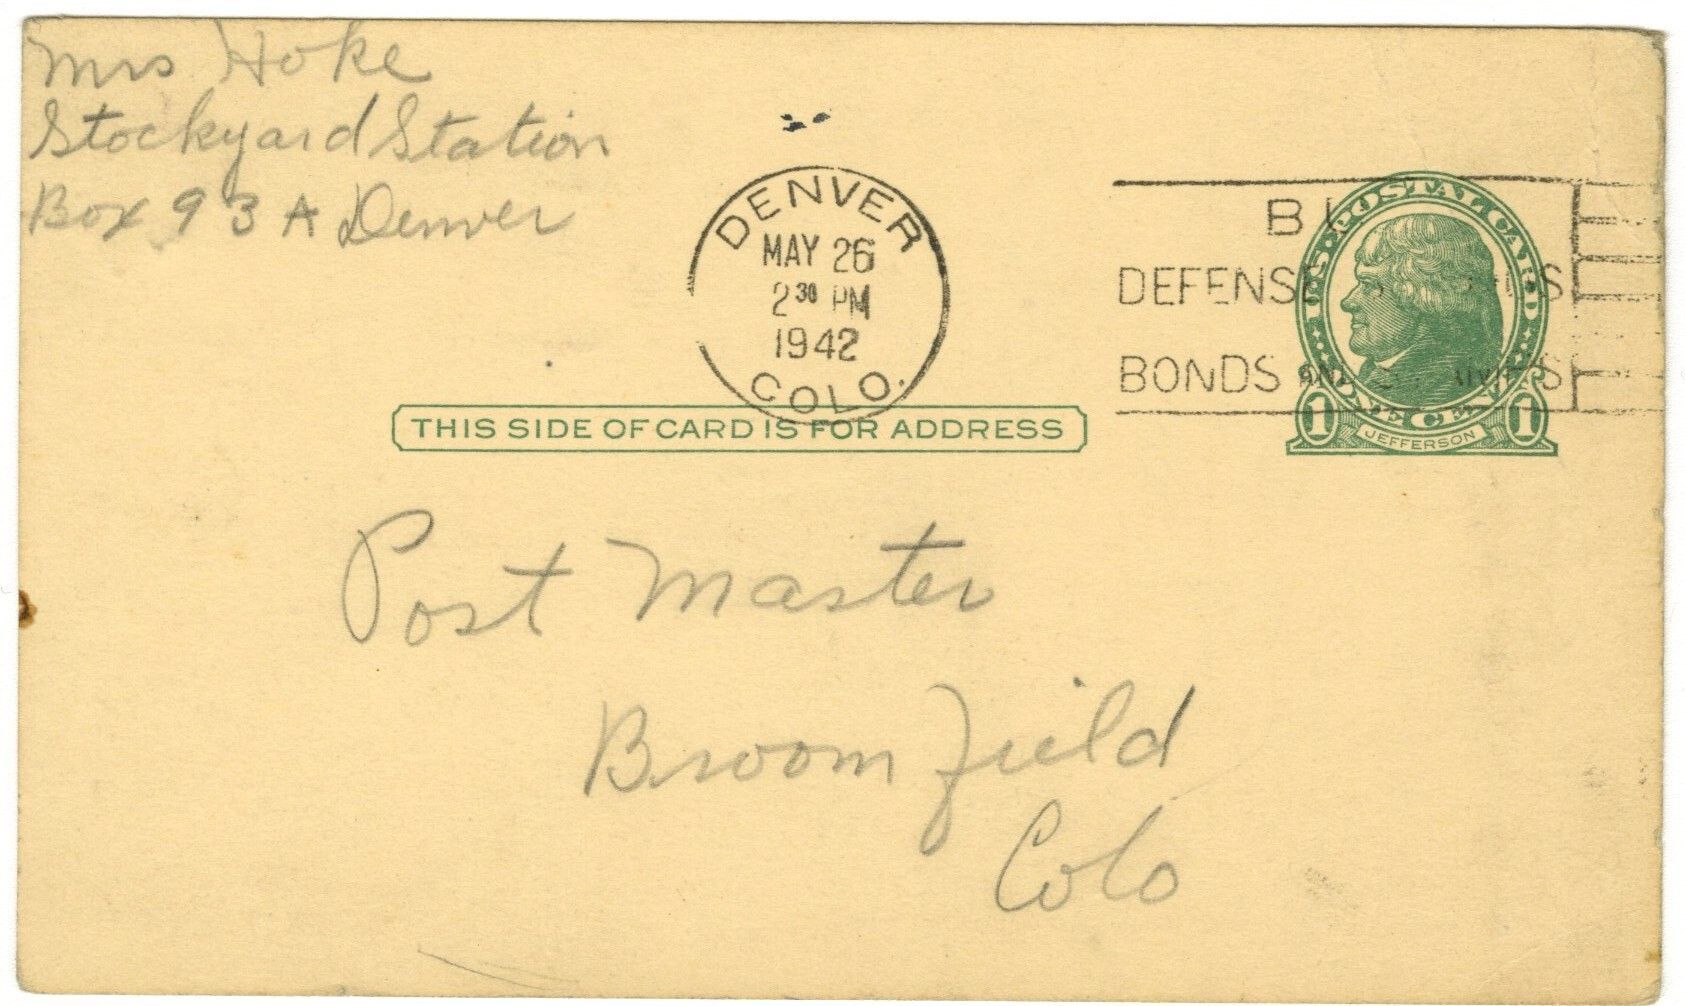 Mrs Hoke
Stockyard Station
Box 93 A Denver
DENVER
MAY 26
2 30 PM
1942
COLO.
BU
DEFENSE
BONDS AND
U.S. POSTAL CARD
ONE CENT
1 JEFFERSON 1
THIS SIDE OF CARD IS FOR ADDRESS
Post Master
Broomfield
Colo